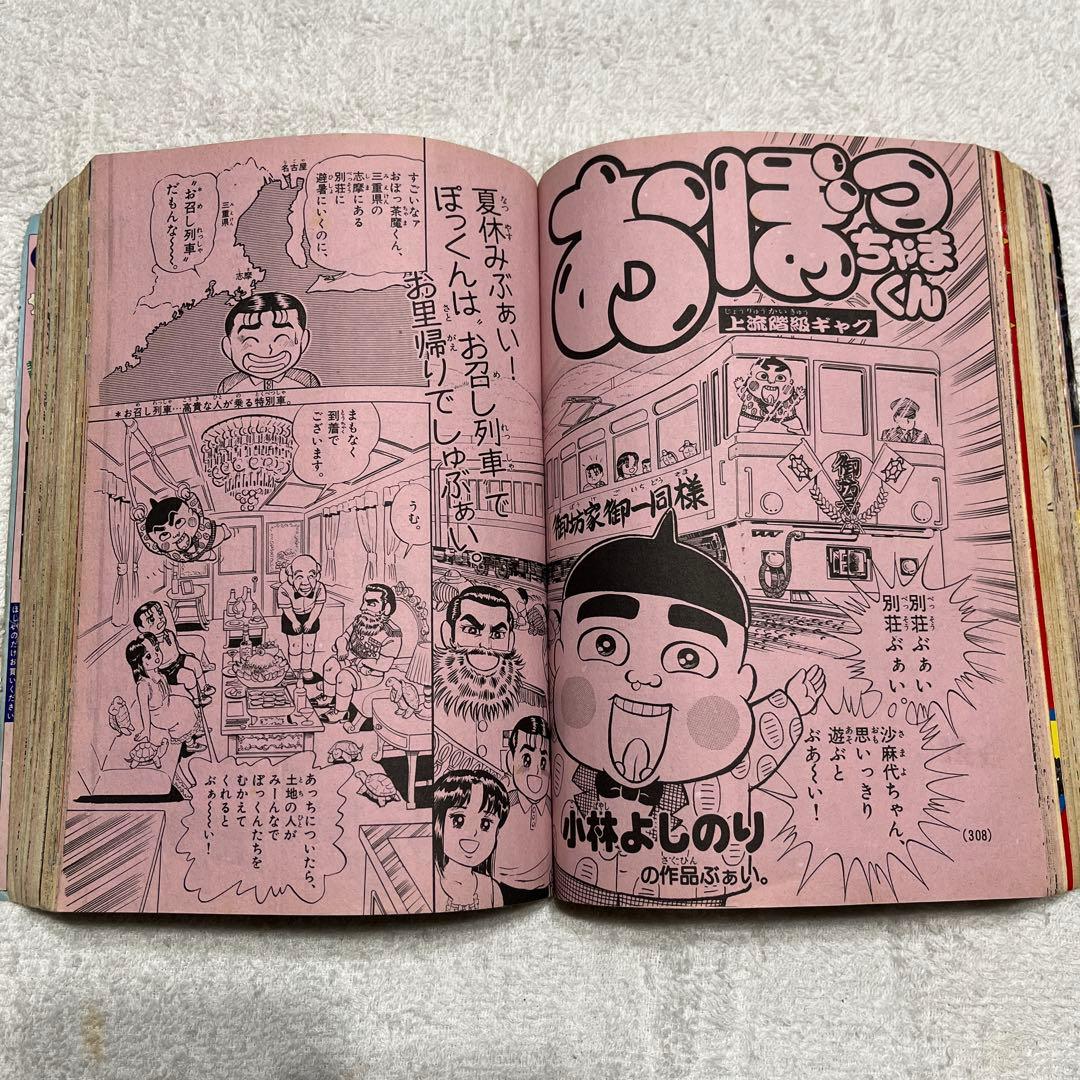 おぼっちゃまくん
じょうりゅうかいきゅう
上流階級ギャグ
御坊家御一同様
別荘ぶぁい
別荘ぶぁい。
沙麻代ちゃん、
思いっきり
遊ぶと
ぶぁ〜い！
小林よしのり
の作品ぶぁい。
(308)
夏休みぶぁい！
ぽっくんは〝お召し列車〟で
お里帰りでしゅぶぁい。
すごいなァ
おぼっ茶魔くん、
三重県の
志摩にある
別荘に
避暑にいくのに、
名古屋
三重県
志摩
〝お召し列車〟
だもんな〜。
*お召し列車…高貴な人が乗る特別車。
まもなく
到着で
ございます。
うむ。
あっちについたら、
土地の人が
みーんなで
ぽっくんたちを
むかえて
くれると
ぶぁ〜い！
ほしいやのだけお買いください